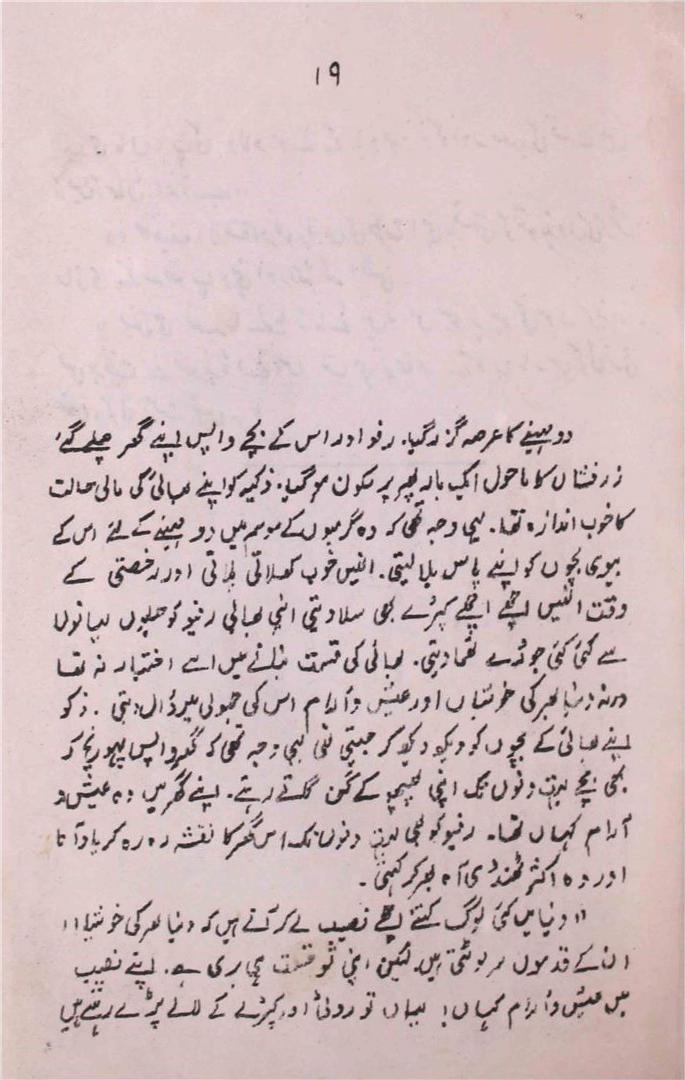 ۱۹
دو مہینے کا عرصہ گزر گیا۔ رفو اور اس کے بچے واپس اپنے گھر چلے گئے،
زرفشاں کا ماحول ایک بار پھر پر سکون ہو گیا۔ ذکیہ کو اپنے بھائی کی مالی حالت
کا خوب اندازہ تھا۔ یہی وجہ تھی کہ وہ گرمیوں کے موسم میں دو مہینے کے لئے اس کے
بیوی بچوں کو اپنے پاس بلا لیتی۔ انہیں خوب کھلاتی پلاتی اور رخصتی کے
وقت انہیں اچھے اچھے کپڑے بھی سلا دیتی اپنی بھابی رفیو کو حیلوں بہانوں
سے کئی کئی جوڑے تھما دیتی۔ بھائی کی قسمت بنانے میں اسے اختیار نہ تھا
ورنہ دنیا بھر کی خوشیاں اور عیش و آرام اس کی جھولی میں ڈال دیتی۔ ذکو
اپنے بھائی کے بچوں کو دیکھ دیکھ کر جیتی تھی یہی وجہ تھی کہ گھر واپس پہونچ کر
بھی بچے بہت دنوں تک اپنی پھپھو کے گن گاتے رہتے۔ اپنے گھر میں وہ عیش و
آرام کہاں تھا۔ رفیو کو بھی بہت دنوں تک اس گھر کا نقشہ رہ رہ کر یاد آتا
اور وہ اکثر ٹھنڈی آہ بھر کر کہتی۔
"دنیا میں کئی لوگ کتنے اچھے نصیب لے کر آتے ہیں کہ دنیا بھر کی خوشیاں
ان کے قدموں میں لوٹتی ہیں لیکن اپنی تو قسمت ہی بری ہے۔ اپنے نصیب
میں عیش و آرام کہاں! یہاں تو روٹی اور کپڑے کے لالے پڑے رہتے ہیں